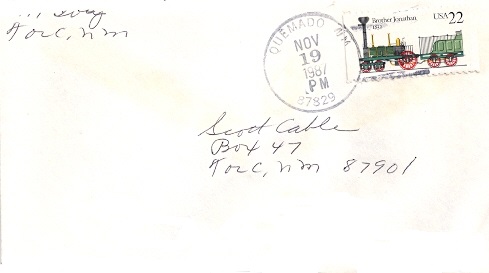 TorC, NM
QUEMADO NM
NOV
19
1987
PM
87829
Brother Jonathan
1832
USA 22
Scott Cable
Box 47
TorC, NM 87901